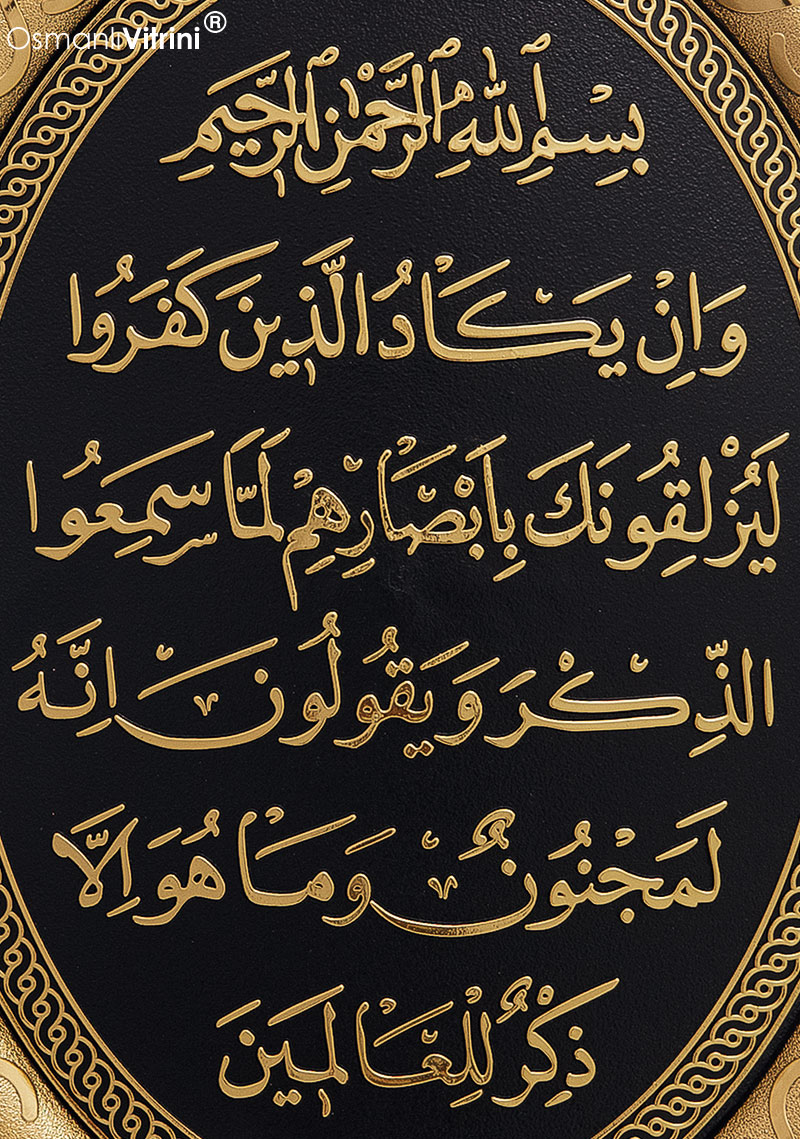 Osmanlı Vitrini®
بِسْمِ اللّٰهِ الرَّحْمٰنِ الرَّحِيمِ
وَاِنْ يَكَادُ الَّذِينَ كَفَرُوا
لَيُزْلِقُونَكَ بِاَبْصَارِهِمْ لَمَّا سَمِعُوا
الذِّكْرَ وَيَقُولُونَ اِنَّهُ
لَمَجْنُونٌ وَمَا هُوَ اِلَّا
ذِكْرٌ لِلْعَالَمِينَ